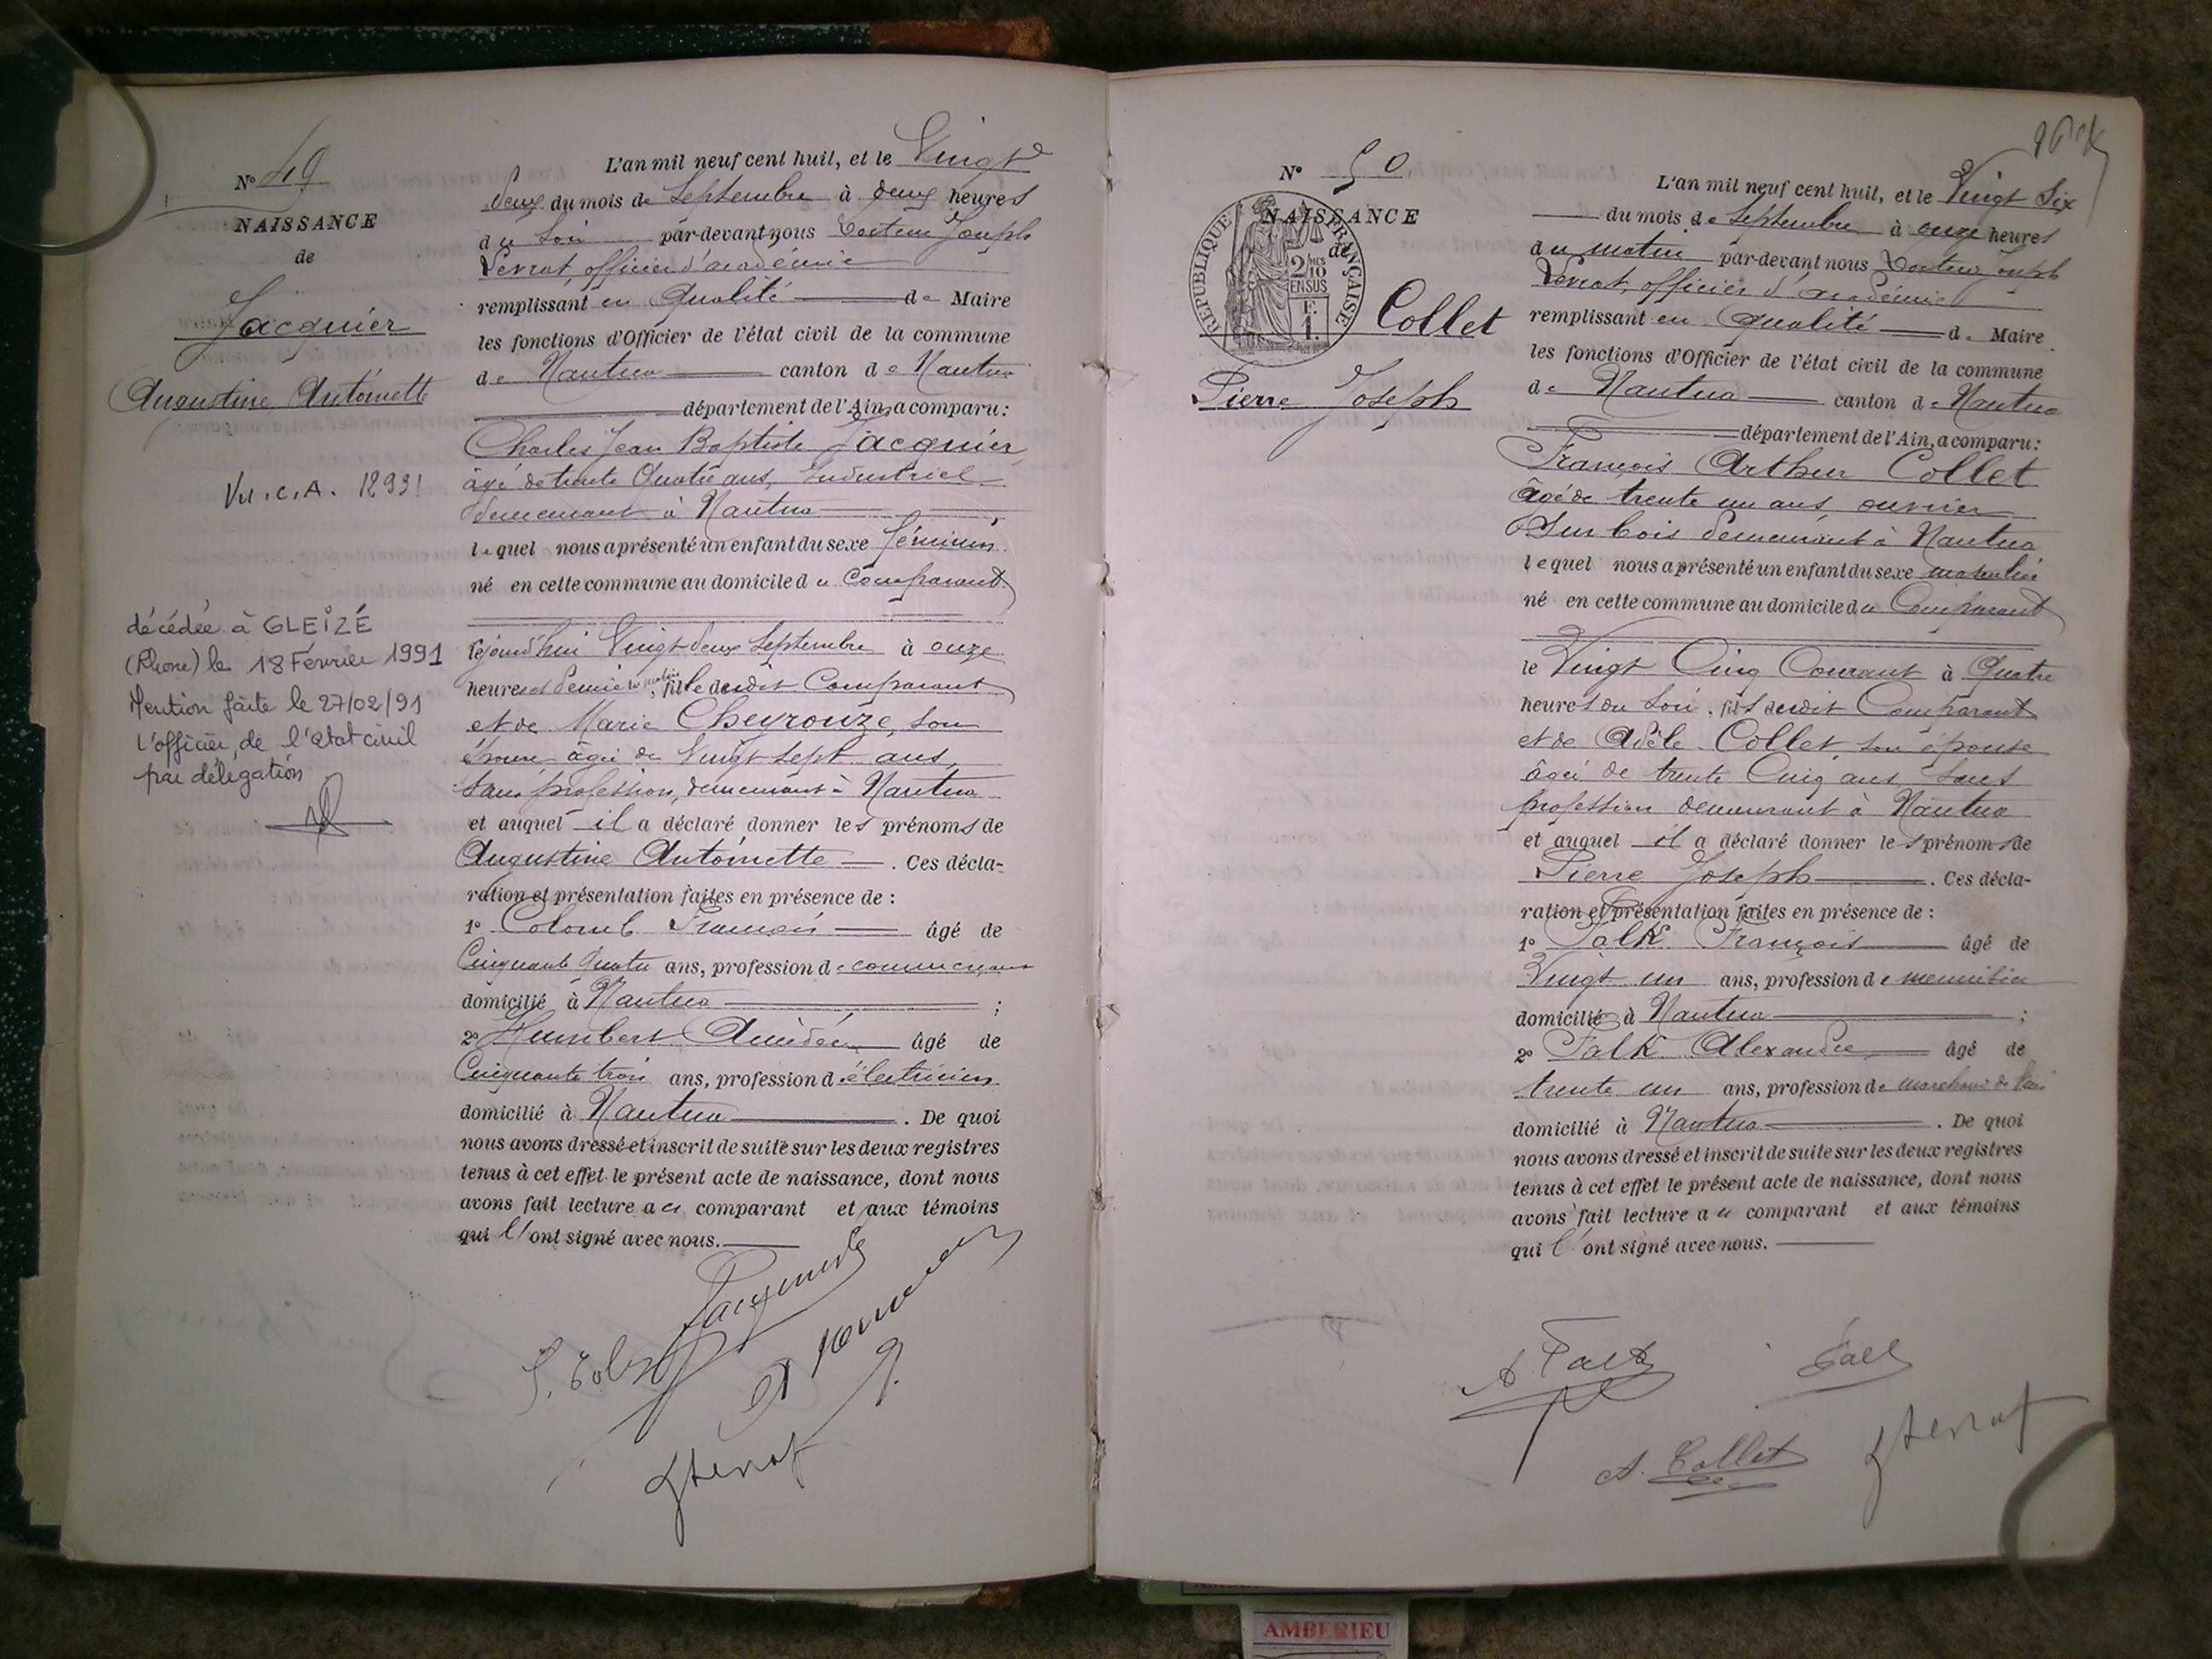 N° 49
NAISSANCE
de
Jacquier
Augustine Antoinette
décédée à GLEIZÉ
(Rhone) le 18 Février 1991
Mention faite le 27/02/91
L'officier de l'etat civil
par délégation
L'an mil neuf cent huit, et le Vingt
deux du mois de Septembre à deux heures
du soir par-devant nous Docteur Joseph
Levrat, officier d'académie
remplissant en qualité de Maire
les fonctions d'Officier de l'état civil de la commune
de Nantua canton de Nantua
département de l'Ain, a comparu:
Charles Jean Baptiste Jacquier,
âgé de trente quatre ans, Industriel
demeurant à Nantua
lequel nous a présenté un enfant du sexe féminin
né en cette commune au domicile du Comparant
cejourd'hui Vingt deux Septembre à onze
heures et demie du matin, fille dudit Comparant
et de Marie Cheyrouze, son
épouse âgée de Vingt sept ans,
sans profession, demeurant à Nantua
et auquel il a déclaré donner les prénoms de
Augustine Antoinette. Ces décla-
ration et présentation faites en présence de :
1° Colomb François âgé de
Cinquante quatre ans, profession de commerçant
domicilié à Nantua ;
2° Humbert Amédée âgé de
Cinquante trois ans, profession d'électricien
domicilié à Nantua. De quoi
nous avons dressé et inscrit de suite sur les deux registres
tenus à cet effet le présent acte de naissance, dont nous
avons fait lecture au comparant et aux témoins
qui l'ont signé avec nous.
N° 50
NAISSANCE
de
REPUBLIQUE FRANÇAISE
2/10 MES
EN SUS
F.
1.
Collet
Pierre Joseph
L'an mil neuf cent huit, et le Vingt Six
du mois de Septembre à onze heures
du matin par-devant nous Docteur Joseph
Levrat, officier d'académie
remplissant en qualité de Maire
les fonctions d'Officier de l'état civil de la commune
de Nantua canton de Nantua
département de l'Ain, a comparu:
François Arthur Collet
âgé de trente un ans, ouvrier
sur bois demeurant à Nantua
lequel nous a présenté un enfant du sexe masculin
né en cette commune au domicile du Comparant
le Vingt Cinq Courant à Quatre
heures du soir, fils dudit Comparant
et de Adèle Collet, son épouse
âgée de trente Cinq ans sans
profession demeurant à Nantua
et auquel il a déclaré donner les prénoms de
Pierre Joseph. Ces décla-
ration et présentation faites en présence de :
1° Falk François âgé de
Vingt un ans, profession de menuisier
domicilié à Nantua ;
2° Falk Alexandre âgé de
trente un ans, profession de marchand de
domicilié à Nantua. De quoi
nous avons dressé et inscrit de suite sur les deux registres
tenus à cet effet le présent acte de naissance, dont nous
avons fait lecture au comparant et aux témoins
qui l'ont signé avec nous.
A Falk
Falk
A. Collet
AMBERIEU